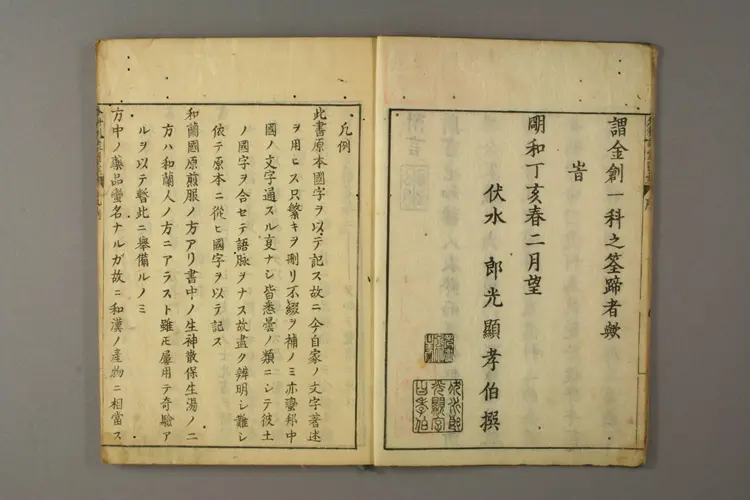 謂金創一科之筌蹄者歟
旹
明和丁亥春二月望
伏水 郎光顯孝伯撰
凡例
此書原本國字ヲ以テ記ス故ニ今自家ノ文字著述
ヲ用ヒス只繁キヲ刪リ不綴ヲ補ノミ亦蠻邦中
國ノ文字通スル叓ナシ皆悉曇ノ類ニシテ彼土
ノ國字ヲ合セテ語脉ヲナス故盡ク辨明シ難シ
依テ原本ニ從ヒ國字ヲ以テ記ス
和蘭國原煎服ノ方アリ書中ノ生神散保生湯ノ二
方ハ和蘭人ノ方ニアラスト雖モ屢用テ奇驗ア
ルヲ以テ暫此ニ舉備ルノミ
方中ノ藥品蠻名ナルガ故ニ和漢ノ產物ニ相當ス